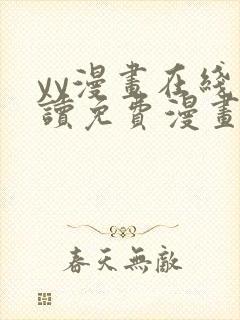 yy漫畫在綫
讀免費漫畫
春天無敵